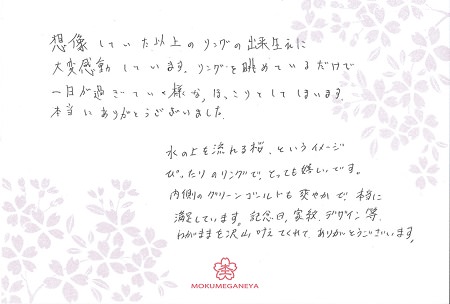 想像していた以上のリングの出来生えに
大変感動しています。リングを眺めているだけで
一日が過ぎていく様な、ほっこりとしてしまいます。
本当にありがとうございました。
水の上を流れる桜、というイメージ
ぴったりのリングで、とっても嬉しいです。
内側のグリーンゴールドも爽やかで、本当に
満足しています。記念日、家紋、デザイン等、
わがままを沢山叶えてくれて、ありがとうございます。
MOKUMEGANEYA